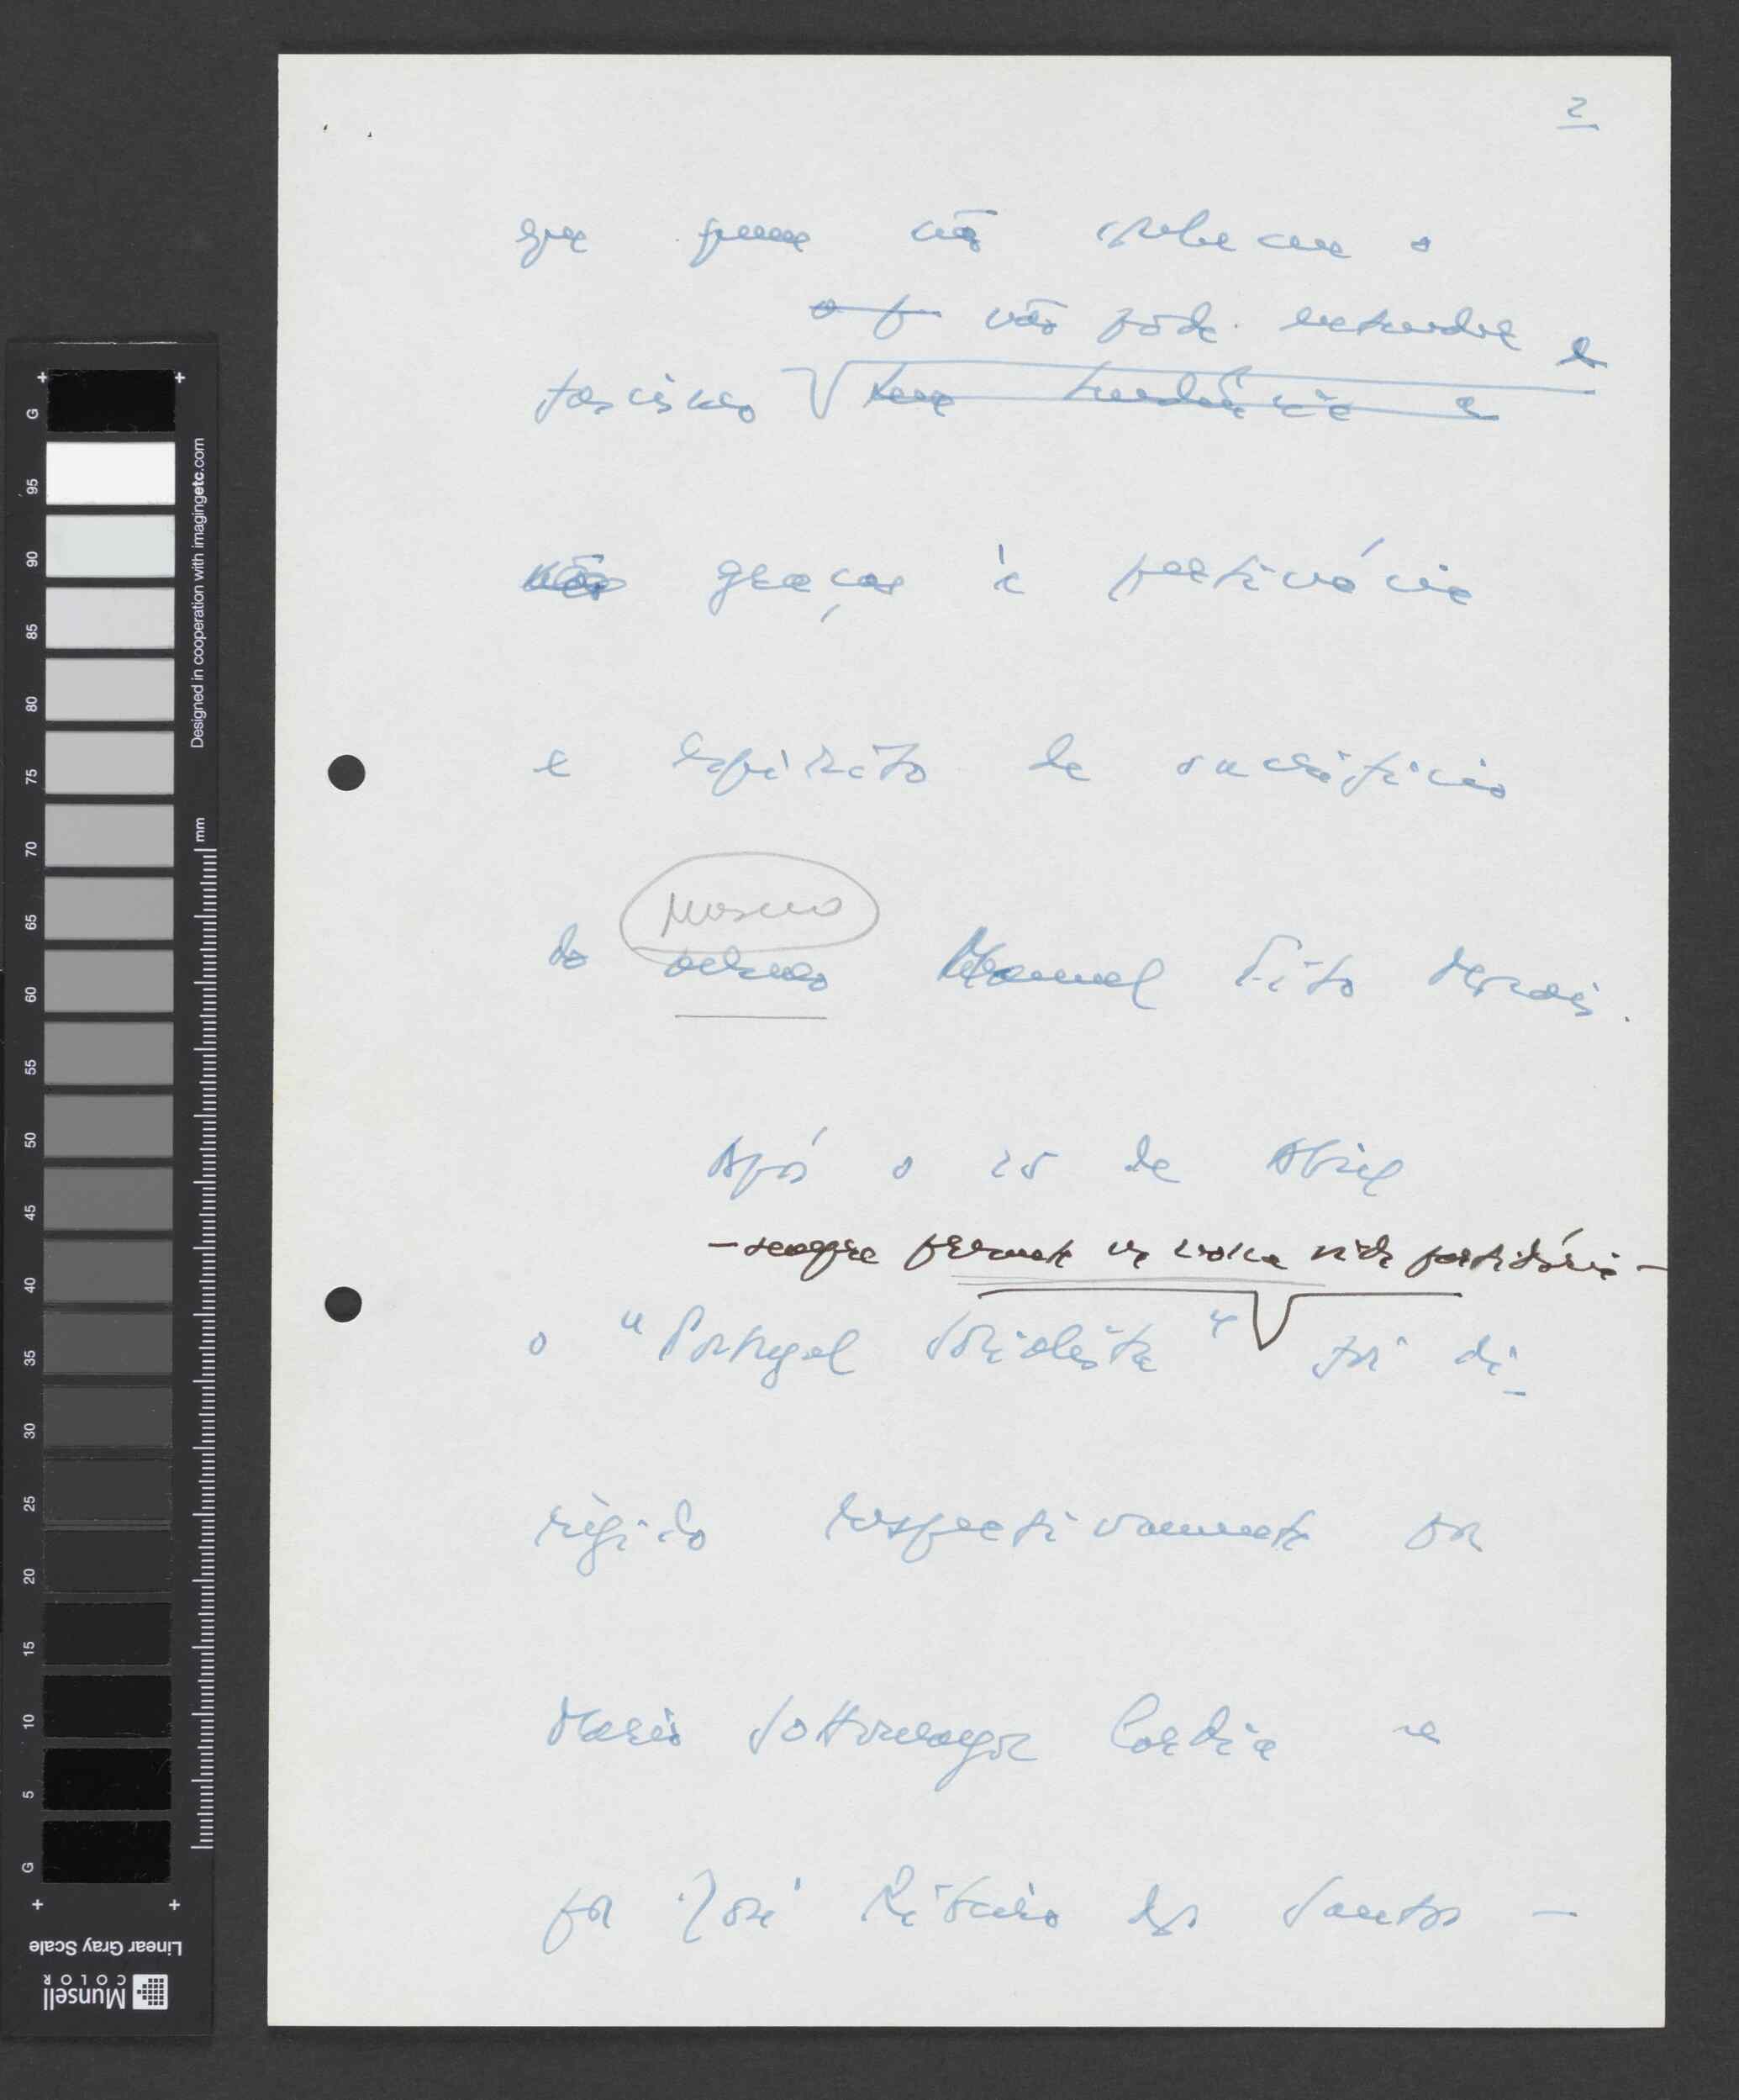 2
que quem não
o f não pôde entender e
fascismo
não graças à pertinácia
e espírito de sacrifício
nosso
do nosso Manuel Tito Morais.
Após o 25 de Abril
— sempre presente na nossa vida partidária —
o "Portugal Socialista" foi di-
rigido respectivamente por
Mário Sottomayor Cardia e
por José Ribeiro dos Santos —
G
95
90
85
80
75
70
65
60
55
50
45
40
35
30
25
20
15
10
5
G
Designed in cooperation with imagingetc.com
mm
Linear Gray Scale
Munsell
COLOR